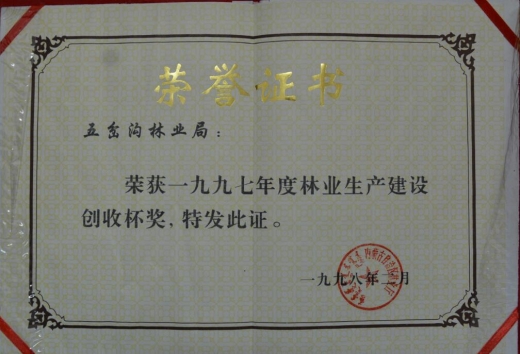 荣誉证书
五岔沟林业局：
荣获一九九七年度林业生产建设
创收杯奖，特发此证。
一九九八年二月